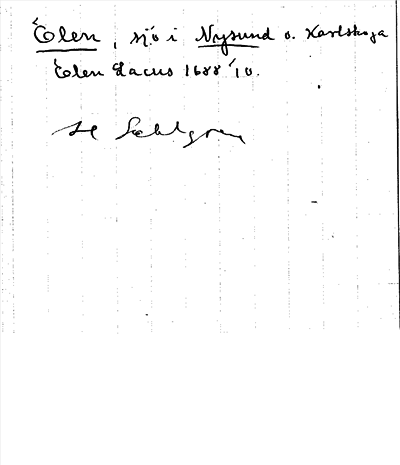 Ölen, sjö i Nysund o. Karlskoga
Ölen Lacus 1688 1/10.
Sahlgren